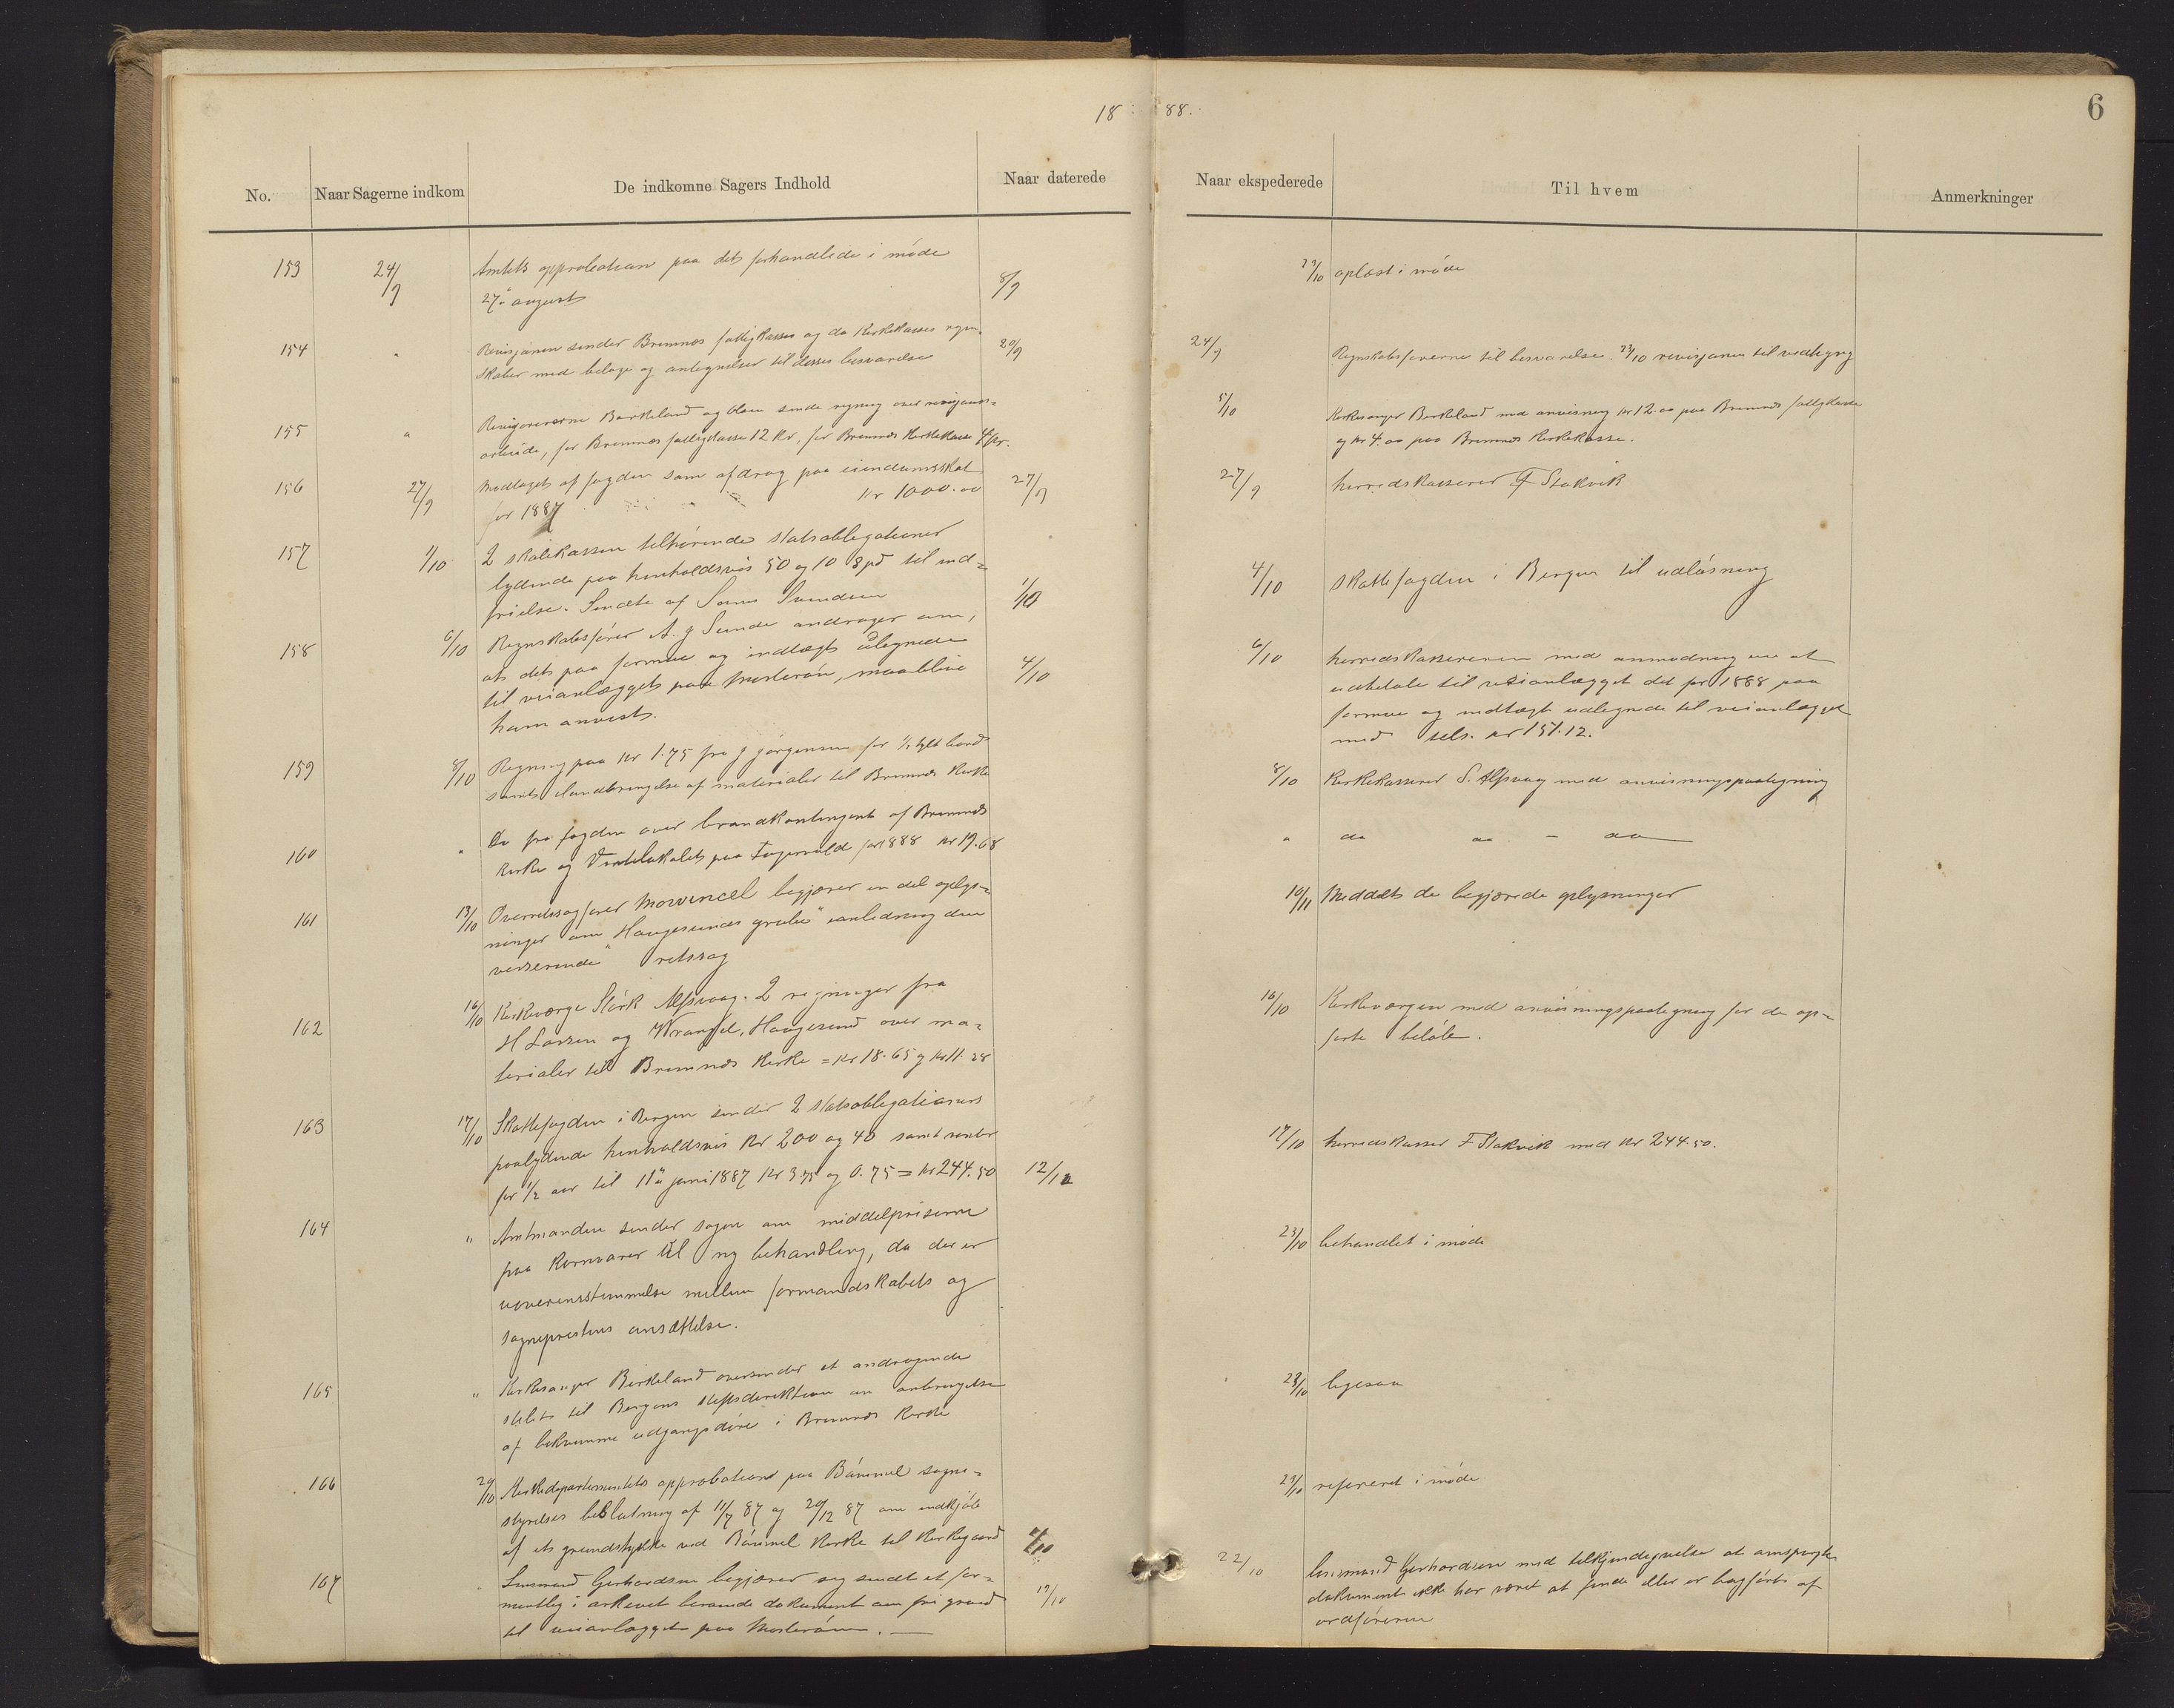 18 88.
6
No. Naar Sagerne indkom De indkomne Sagers Indhold Naar daterede Naar ekspederede Til hvem Anmerkninger
153 24/9 Amtets approbation paa det forhandlede i møde
27de august 8/9 23/10 oplæst i møde
154 " Revisjonen sender Bremnes fattigkasses og do Kirkekasses regn-
skaber med belage og antegnelser til disses besvarelse 20/9 24/9 Regnskabsførerne til besvarelse. 23/10 revisjonen til vedtegng
155 " Revisorerne Birkeland og Olsen sende regning over revisjons-
arbeide, for Bremnes fattigkasse 12 Kr, for Bremnes Kirkekasse 4 kr. 5/10 Kirkesanger Birkeland med anvisning kr 12.00 paa Bremnes fattigkasse
og kr 4.00 paa Bremnes Kirkekasse.
156 27/9 Modtaget af fogden som afdrag paa eiendomsskat
for 1887 Kr 1000.00 27/9 27/9 herredskasserer F Stokvik
157 1/10 2 skolekassen tilhørende statsobligationer
lydende paa henholdsvis 50 og 10 Spd til ind-
frielse. Sendte af 1/10 4/10 skattefogden i Bergen til udløsning
158 6/10 Regnskabsfører A. J Sunde andrager om,
at det paa formue og indtægt udlignede
til veianlægget paa Mosterøen, maa blive
ham anvist. 4/10 6/10 herredskassereren med anmodning om at
udbetale til veianlægget det for 1888 paa
formue og indtægt udlignede til veianlægget
med tils. kr 151.12.
159 8/10 Regning paa kr 1.75 fra J Jørgensen for 1/2 tylt bord
samt ilandbringelse af materialer til Bremnes Kirke 8/10 Kirkekasserer S. Alfsvaag med anvisningspaategning
160 " Do fra fogden over brandkontingent af Bremnes
kirke og Ventelokalet paa Fagervold for 1888 kr 19.68 " do do - do
161 13/10 Overretssagfører Mowinckel begjærer en del oplys-
ninger om "Haugesunds grube" i anledning den
verserende retssag 10/11 Meddelt de begjærede oplysninger
162 16/10 Kirkeværge Størk Alfsvaag. 2 regninger fra
H Larsen og Wrangel, Haugesund over ma-
terialer til Bremnes Kirke = kr 18.65 og kr 11.28 16/10 Kirkeværgen med anvisningspaategning for de op-
førte beløb.
163 17/10 Skattefogden i Bergen sender 2 statsobligationers
paalydende henholdsvis kr 200 og 40 samt renter
for 1/2 aar til 11te juni 1887 Kr 3.75 og 0.75 = kr 244.50 12/10 17/10 herredskasser F Stokvik med kr 244.50.
164 " Amtmanden sender sagen om middelpriserne
paa kornvarer til ny behandling, da der er
uoverensstemmelse mellem formandskabets og
sogneprestens ansættelse. 23/10 behandlet i møde
165 " Kirkesanger Birkeland oversender et andragende
stilet til Bergens stiftsdirektion om anbringelse
af bekvemme udgangsdøre i Bremnes Kirke 23/10 ligesaa
166 20/10 Kirkedepartementets approbation paa Bømmel sogne-
styrelses beslutning af 11/7 87 og 20/12 87 om indkjøb
af et grundstykke ved Bømmel Kirke til Kirkegaard 23/10 refereret i møde
167 Lensmand Gerhardsen begjærer sig sendt et for-
mentlig i arkivet beroende dokument om fri grund
til veianlægget paa Mosterøen. 19/10 22/10 lensmand Gerhardsen med tilkjendegivelse at omspurgte
dokument ikke har været at finde eller er bogført af
ordføreren